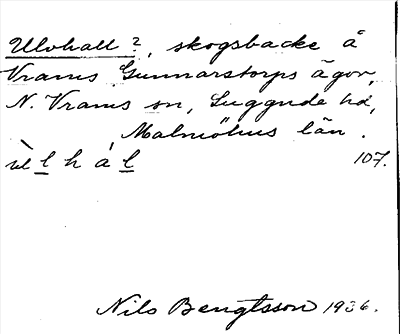 Ulvhall?, skogsbacke å
Vrams Gunnarstorps ägor,
N. Vrams sn, Luggude hd,
Malmöhus län.
l h á l 107.
Nils Bengtsson 1936.